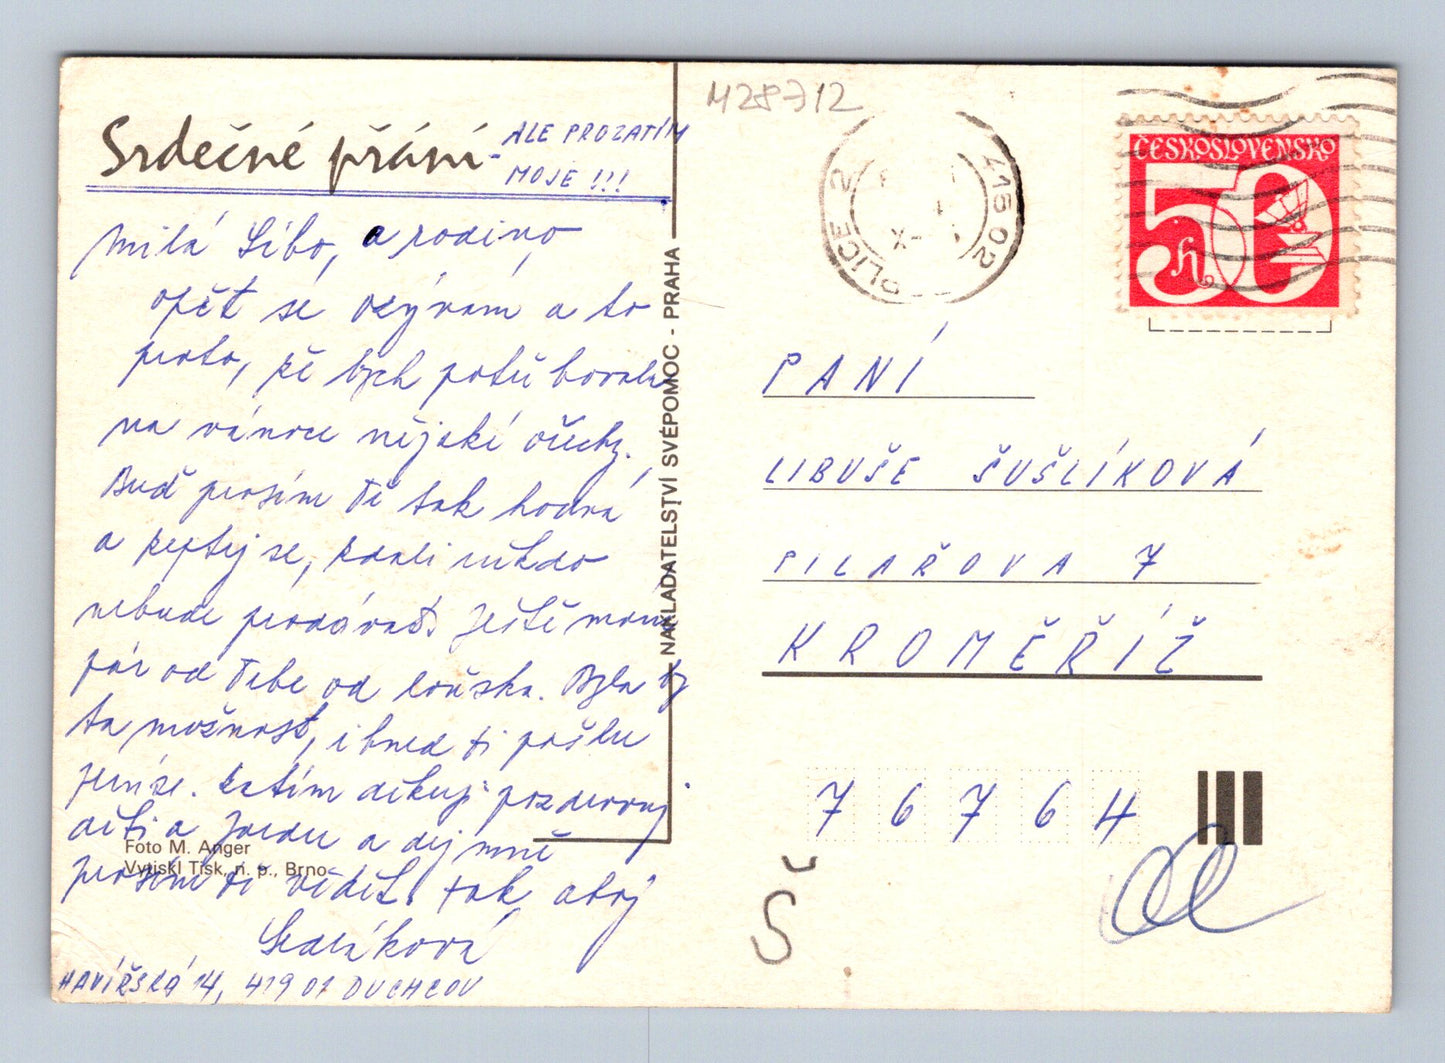 M28712
Srdečné přání - ALE PROZATÍM
MOJE !!!
Milá Libo, a rodino,
opět se ozývám a to
proto, že bych potřebovala
na vánoce nějaké ořechy.
Buď prosím Tě tak hodná
a zeptej se, zdali někdo
nebude prodávat. Ještě mám
pár od Tebe od loňska. Byla by
ta možnost, ihned ti pošlu
peníze. Zatím děkuji pozdravuj
děti a Jardu a dej mně
prosím ti vědět. Tak ahoj
Sedláková
HAVÍŘSKÁ 14, 419 01 DUCHCOV
Foto M. Anger
Vytiskl Tisk, n. p., Brno
NAKLADATELSTVÍ SVÉPOMOC - PRAHA
PLICE 2
415 02
ČESKOSLOVENSKO
50 h
PANÍ
LIBUŠE ŠUŠLÍKOVÁ
PILAŘOVA 7
KROMĚŘÍŽ
76764
Š